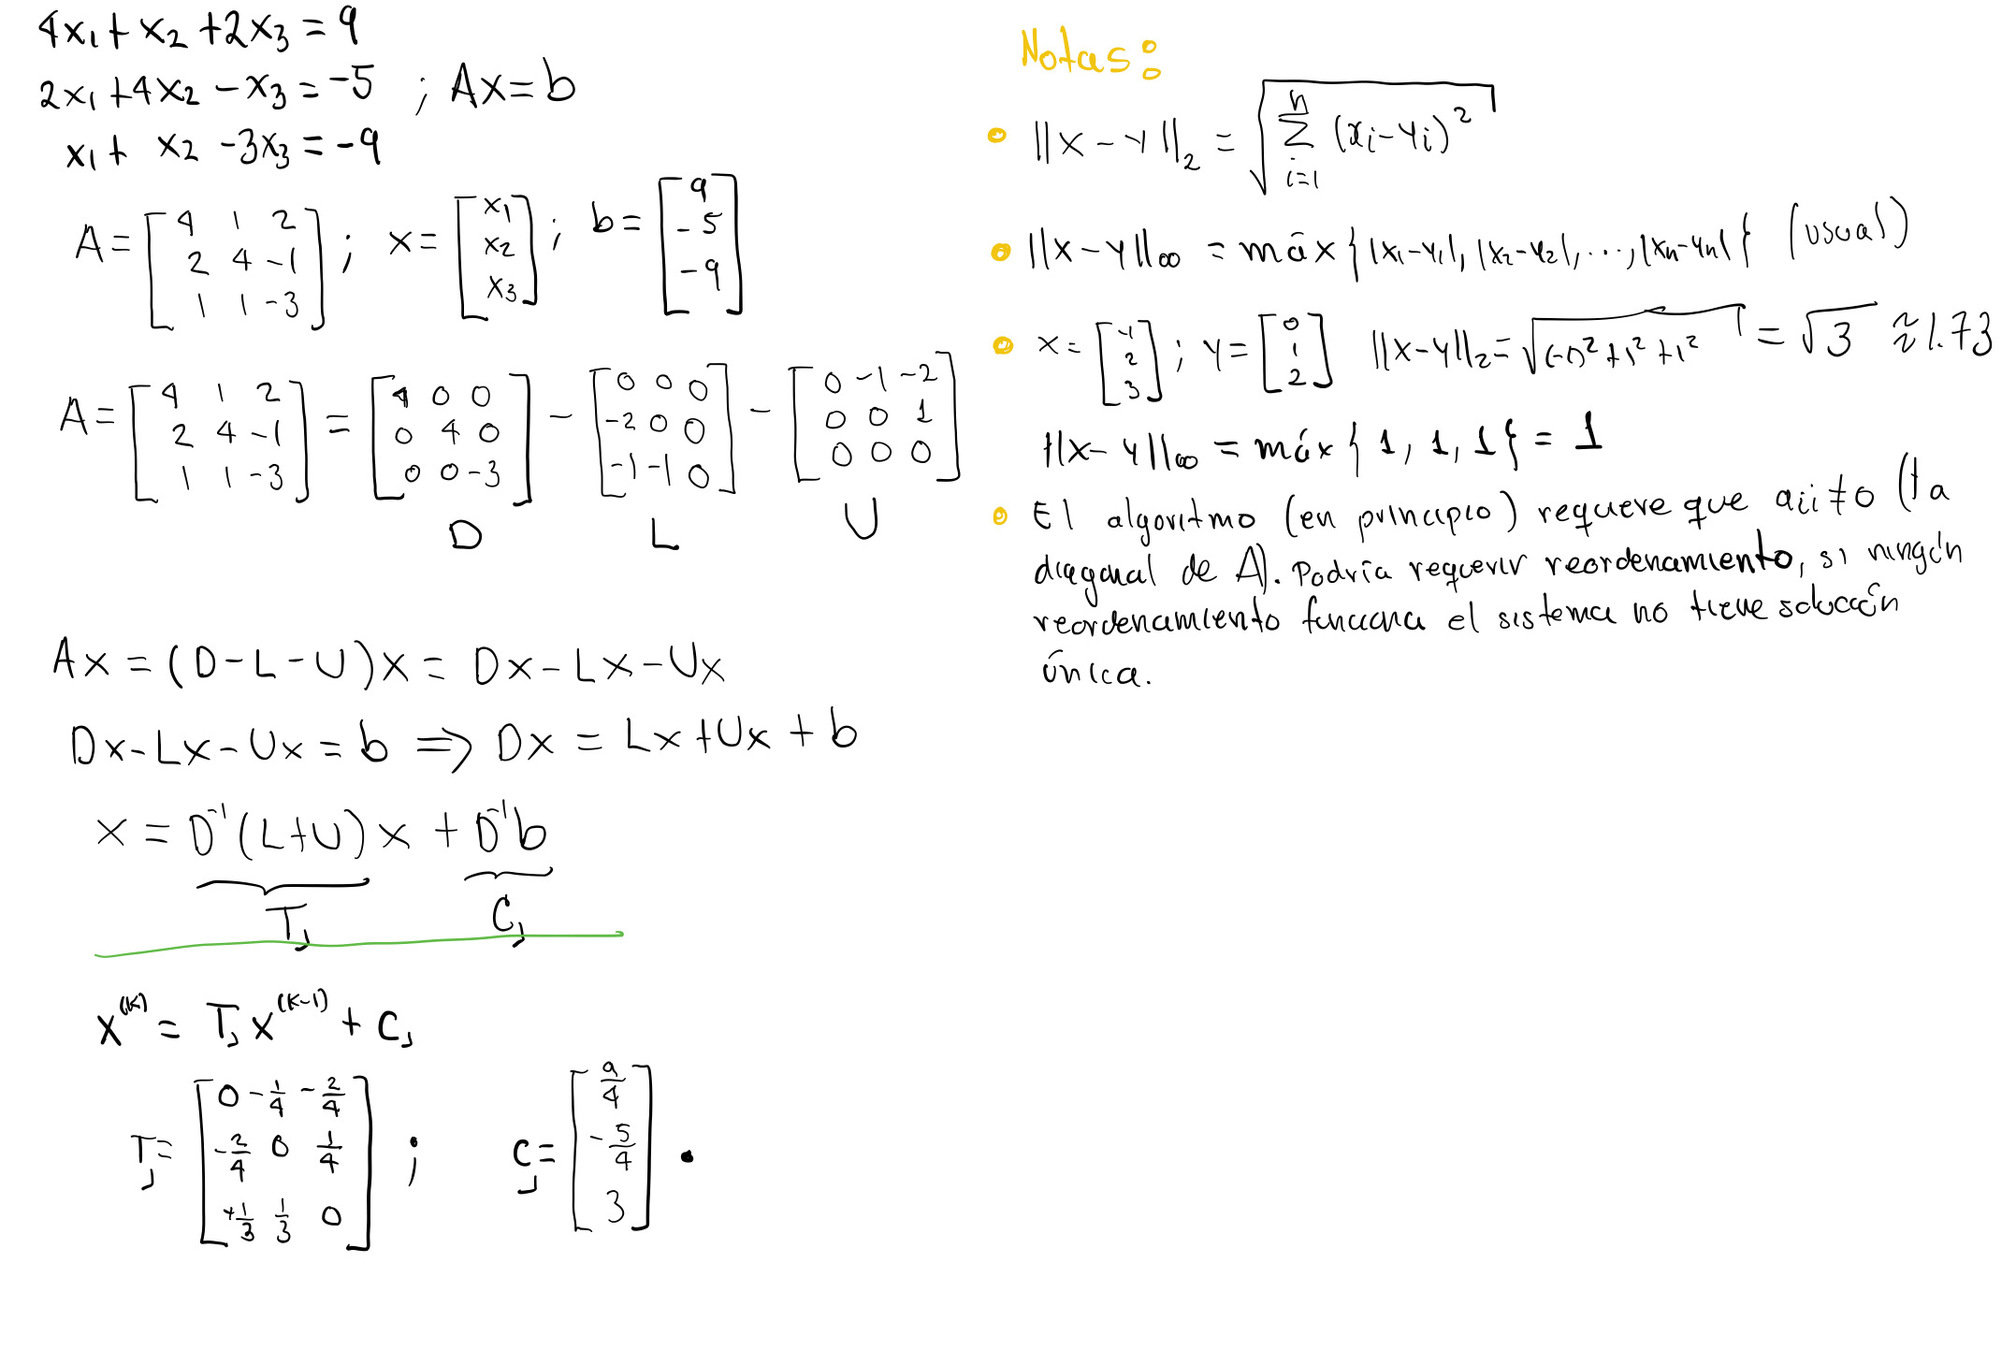 4x₁ + x₂ + 2x₃ = 9
2x₁ + 4x₂ - x₃ = -5 ; Ax = b
x₁ + x₂ - 3x₃ = -9
A = [4 1 2; 2 4 -1; 1 1 -3] ; x = [x₁; x₂; x₃] ; b = [9; -5; -9]
A = [4 1 2; 2 4 -1; 1 1 -3] = [4 0 0; 0 4 0; 0 0 -3] - [0 0 0; -2 0 0; -1 -1 0] - [0 -1 -2; 0 0 1; 0 0 0]
D L U
Ax = (D - L - U)x = Dx - Lx - Ux
Dx - Lx - Ux = b ⇒ Dx = Lx + Ux + b
x = D⁻¹(L+U)x + D⁻¹b
Tⱼ Cⱼ
x⁽ᵏ⁾ = Tⱼ x⁽ᵏ⁻¹⁾ + Cⱼ
Tⱼ = [0 -1/4 -2/4; -2/4 0 1/4; +1/3 1/3 0] ; Cⱼ = [9/4; -5/4; 3] .
Notas:
• ||x - y||₂ = √(∑ᵢ₌₁ⁿ (xᵢ - yᵢ)²)
• ||x - y||∞ = máx{|x₁-y₁|, |x₂-y₂|, ..., |xₙ-yₙ|} (usual)
• x = [-1; 2; 3] ; y = [0; 1; 2] ||x-y||₂ = √((-1)² + 1² + 1²) = √3 ≈ 1.73
||x - y||∞ = máx{1, 1, 1} = 1
• El algoritmo (en principio) requiere que aᵢᵢ ≠ 0 (la
diagonal de A). Podría requerir reordenamiento, si ningún
reordenamiento funciona el sistema no tiene solución
única.